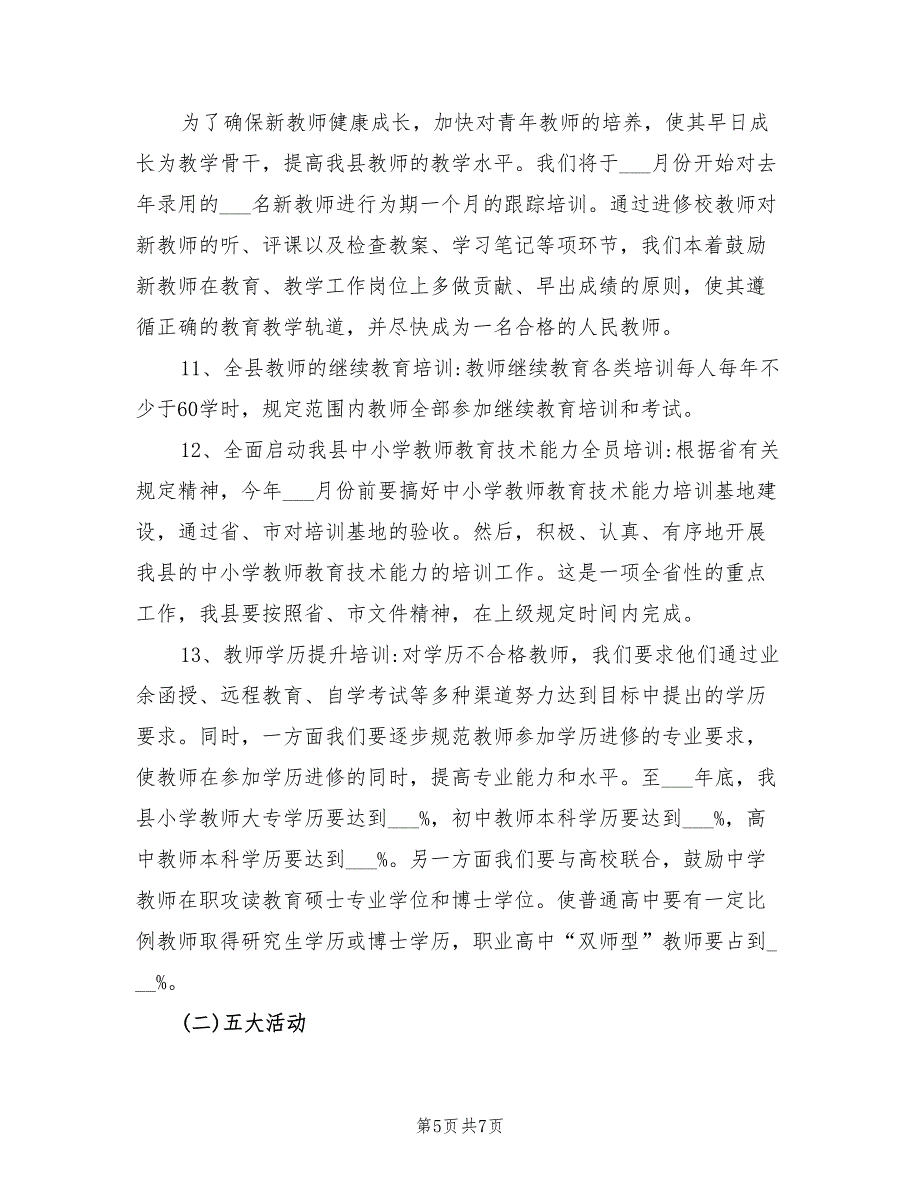 为了确保新教师健康成长，加快对青年教师的培养，使其早日成
长为教学骨干，提高我县教师的教学水平。我们将于___月份开始对去
年录用的___名新教师进行为期一个月的跟踪培训。通过进修校教师对
新教师的听、评课以及检查教案、学习笔记等项环节，我们本着鼓励
新教师在教育、教学工作岗位上多做贡献、早出成绩的原则，使其遵
循正确的教育教学轨道，并尽快成为一名合格的人民教师。
11、全县教师的继续教育培训:教师继续教育各类培训每人每年不
少于60学时，规定范围内教师全部参加继续教育培训和考试。
12、全面启动我县中小学教师教育技术能力全员培训:根据省有关
规定精神，今年___月份前要搞好中小学教师教育技术能力培训基地建
设，通过省、市对培训基地的验收。然后，积极、认真、有序地开展
我县的中小学教师教育技术能力的培训工作。这是一项全省性的重点
工作，我县要按照省、市文件精神，在上级规定时间内完成。
13、教师学历提升培训:对学历不合格教师，我们要求他们通过业
余函授、远程教育、自学考试等多种渠道努力达到目标中提出的学历
要求。同时，一方面我们要逐步规范教师参加学历进修的专业要求，
使教师在参加学历进修的同时，提高专业能力和水平。至___年底，我
县小学教师大专学历要达到___%，初中教师本科学历要达到___%，高
中教师本科学历要达到___%。另一方面我们要与高校联合，鼓励中学
教师在职攻读教育硕士专业学位和博士学位。使普通高中要有一定比
例教师取得研究生学历或博士学历，职业高中“双师型”教师要占到_
__%。
(二)五大活动
第5页 共7页